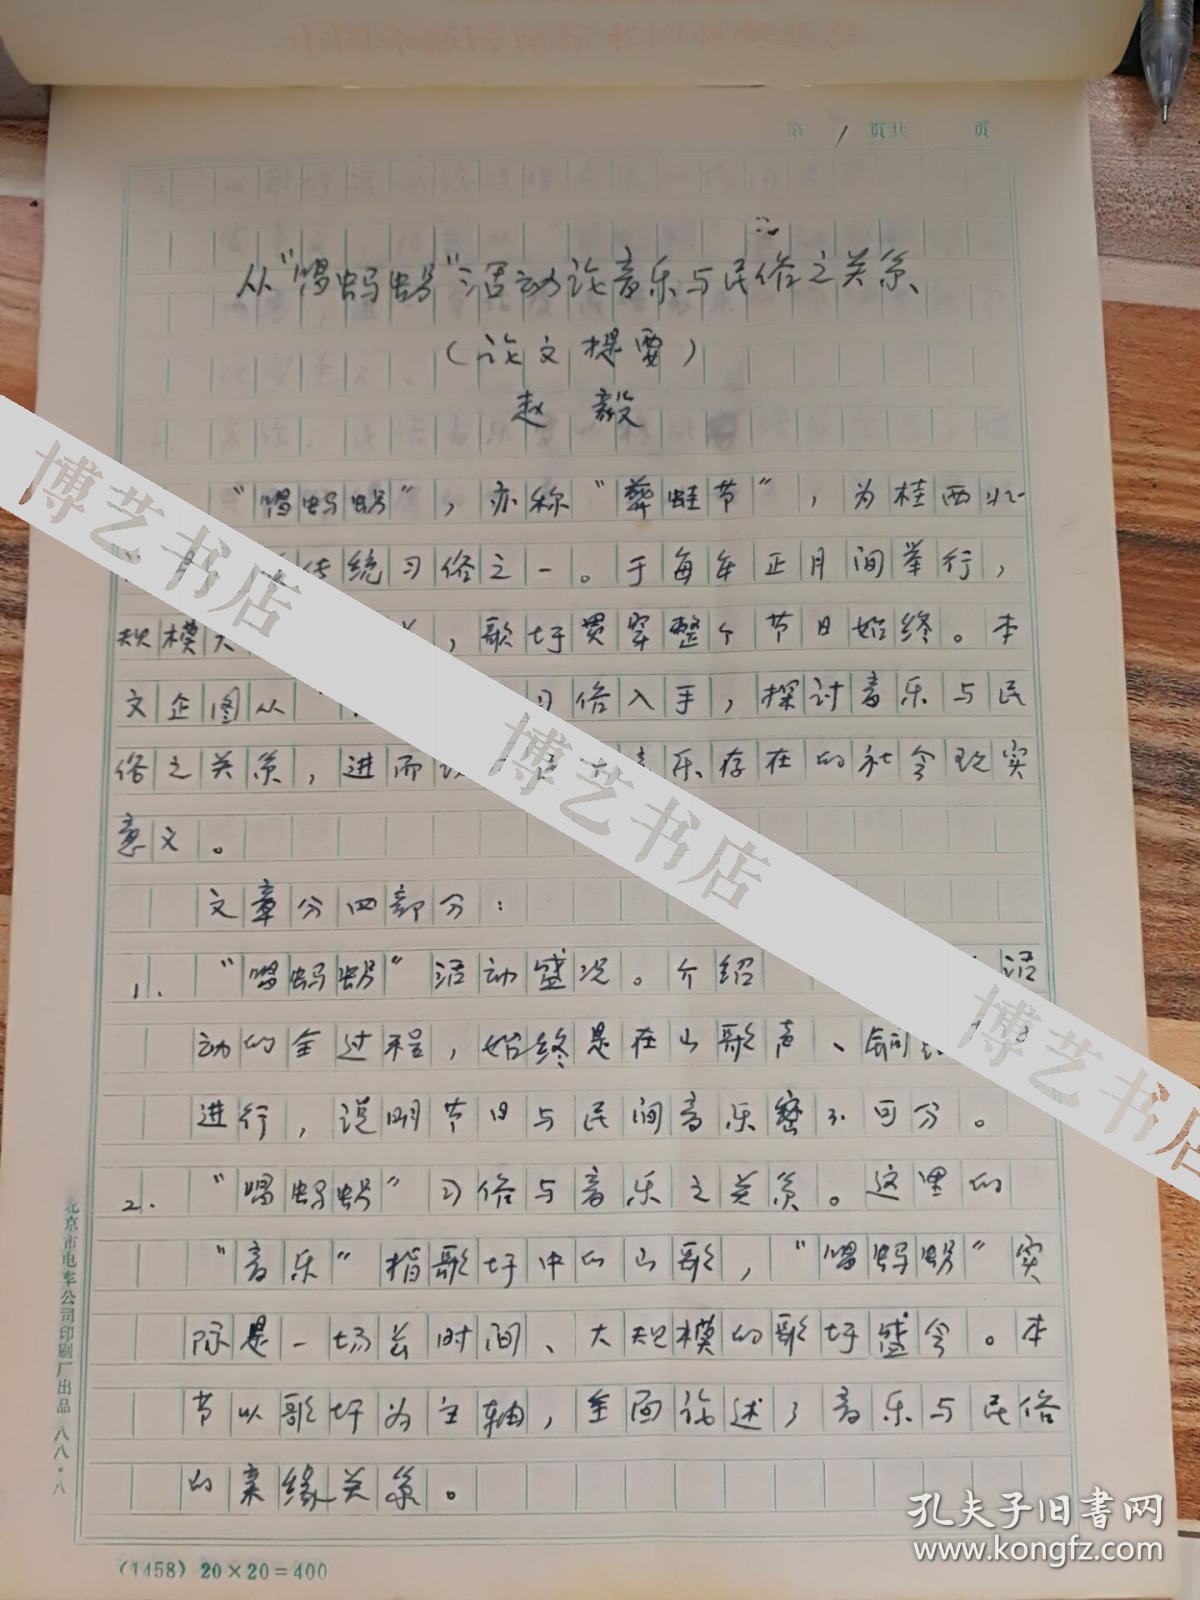 第 1 页共 页
从"唱蚂𧊅"活动论音乐与民俗之关系
(论文提要)
赵 毅
"唱蚂𧊅",亦称"葬蛙节",为桂西北
传统习俗之一。于每年正月间举行,
规模大,歌圩贯穿整个节日始终。本
文企图从"习俗入手,探讨音乐与民
俗之关系,进而音乐存在的社会现实
意义。
文章分四部分:
1. "唱蚂𧊅"活动盛况。介绍活
动的全过程,始终是在山歌声、铜
进行,说明节日与民间音乐密不可分。
2. "唱蚂𧊅"习俗与音乐之关系。这里的
"音乐"指歌圩中的山歌,"唱蚂𧊅"实
际是一场长时间、大规模的歌圩盛会。本
节以歌圩为主轴,全面论述了音乐与民俗
的亲缘关系。
北京市电车公司印刷厂出品 八八·八
(1458) 20×20=400
博艺书店
博艺书店
博艺书店
孔夫子旧书网
www.kongfz.com